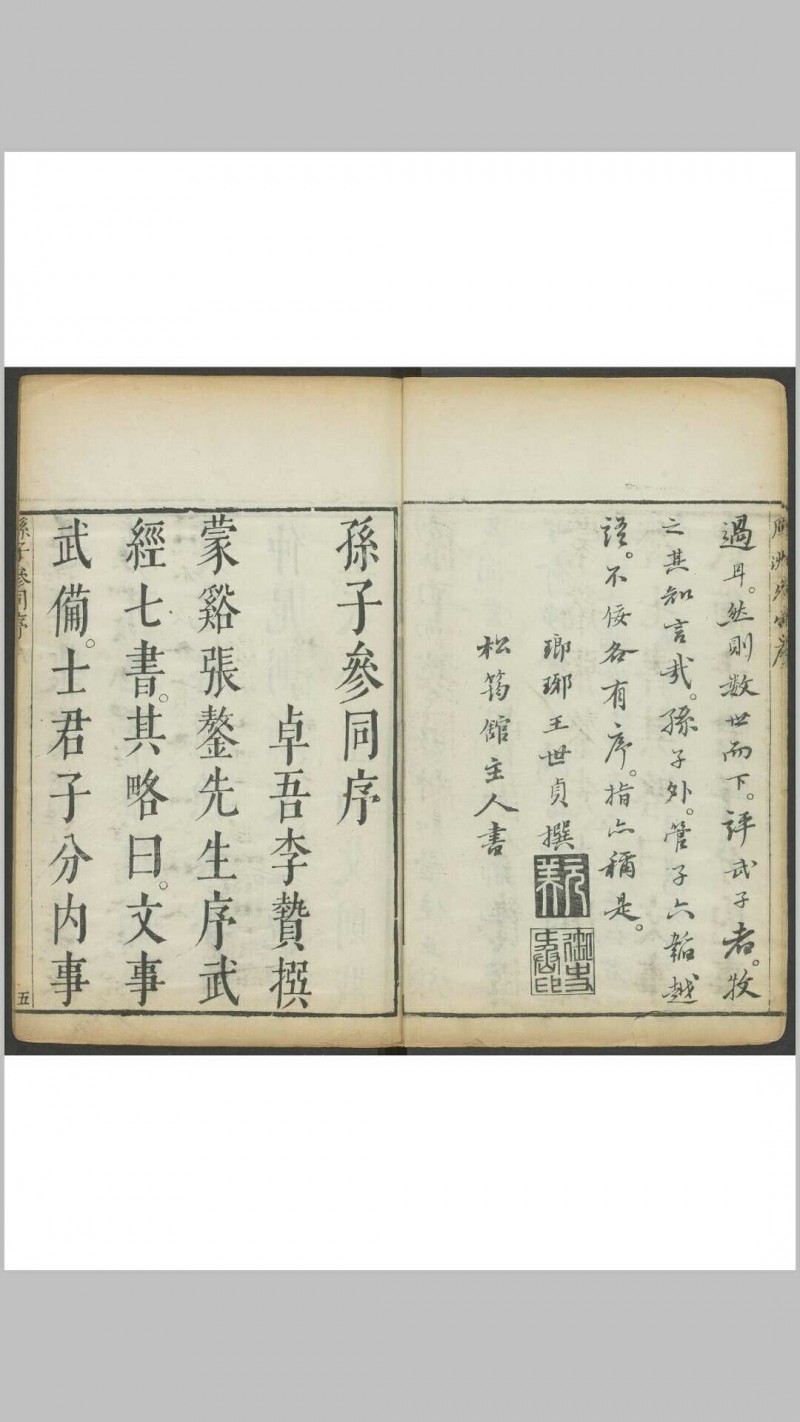 過耳。然則數世而下。評武子者。牧
之其知言哉。孫子外。管子六韜越
語。不佞各有序。指亦稱是。
瑯琊王世貞撰
松筠館主人書
孫子參同序
卓吾李贄撰
蒙谿張鏊先生序武
經七書。其略曰。文事
武備。士君子分內事
孫子參同序
五